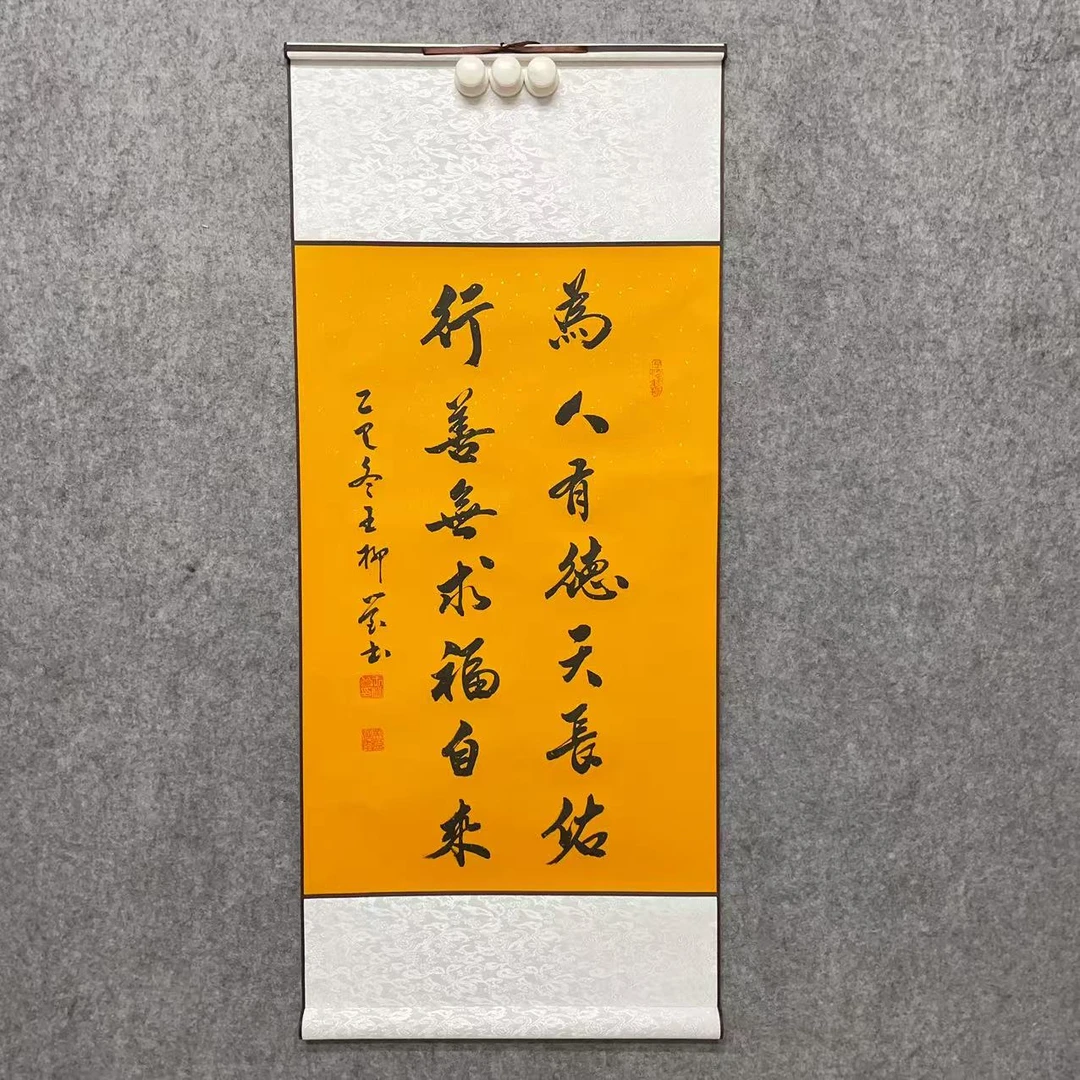 為人有德天長佑
行善無求福自来
乙巳冬王柳営书